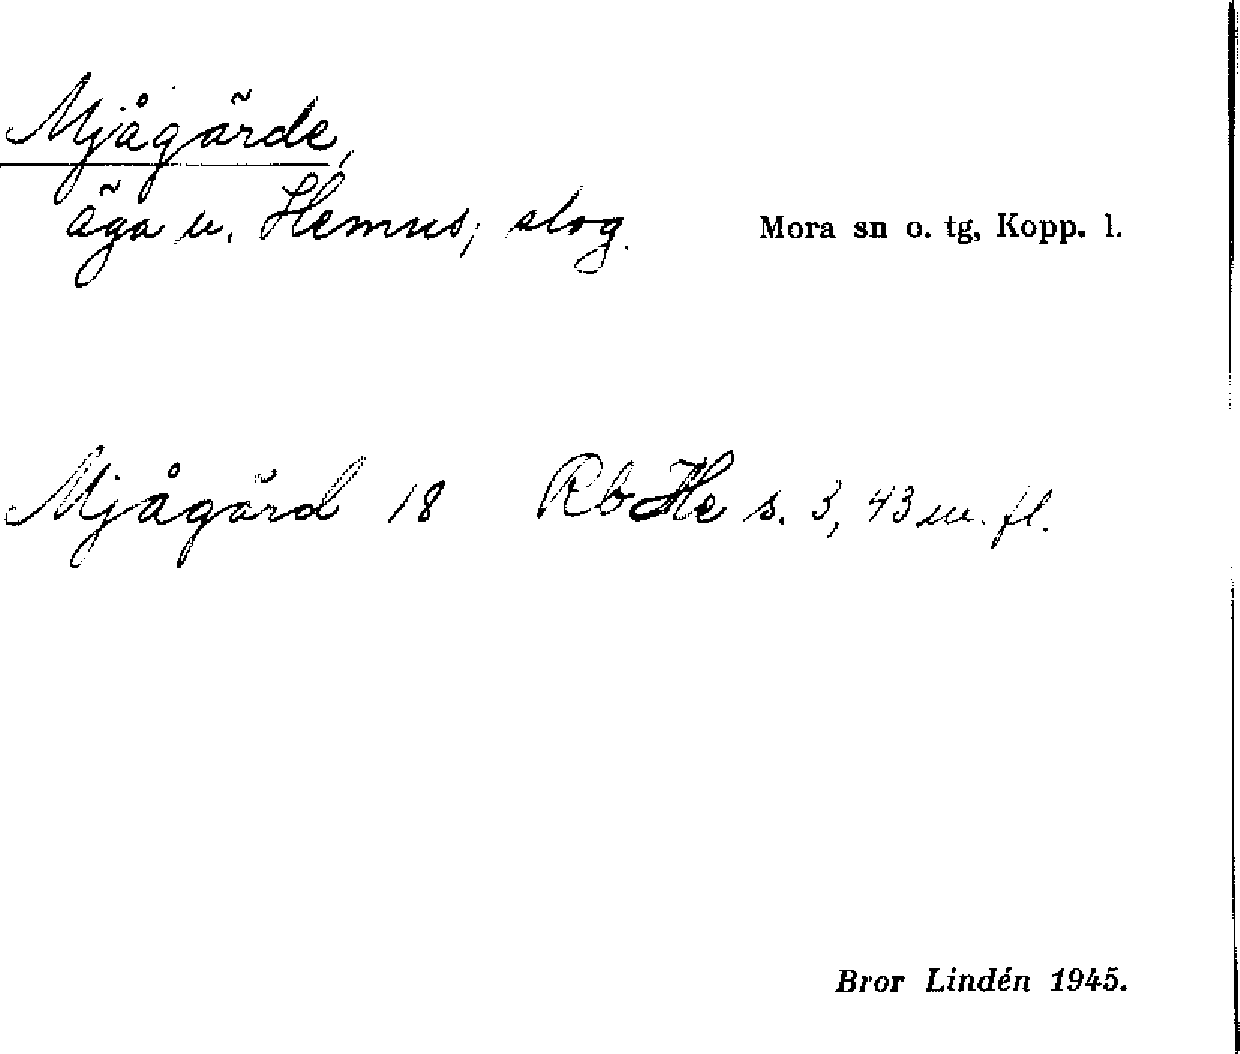 Mjågärde,
äga u. Hemus; slog.
Mora sn o. tg, Kopp. l.
Mjågärd 18 Rb He s. 3, 43 m. fl.
Bror Lindén 1945.